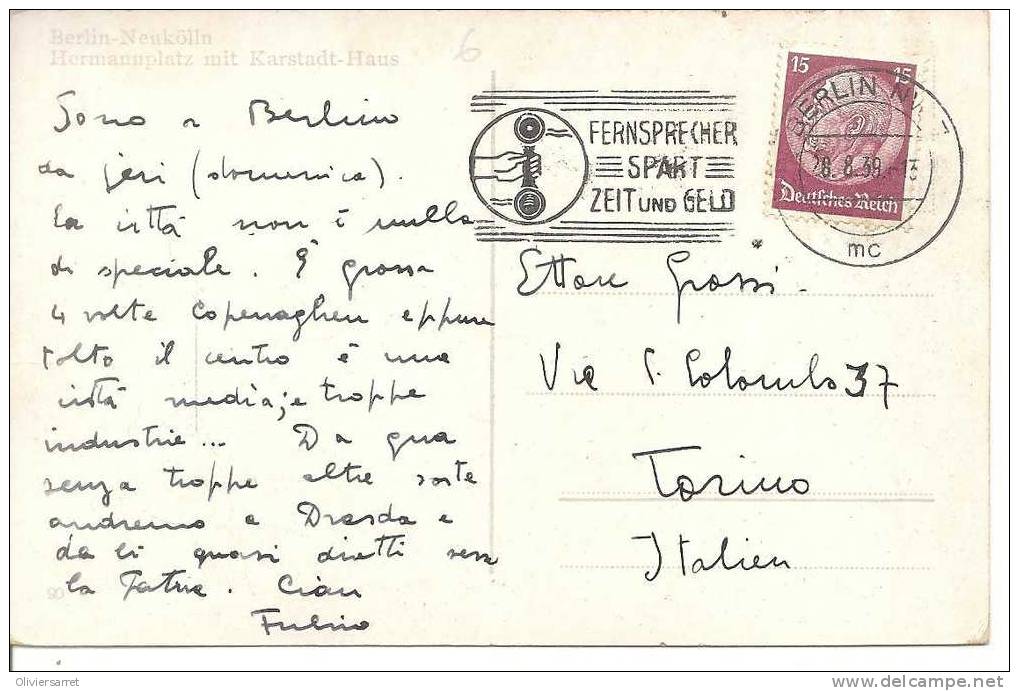 Berlin-Neukölln
Hermannplatz mit Karstadt-Haus
6
Sono a Berlino
da jeri (domenica).
La città non è nulla
di speciale. È grossa
4 volte Copenaghen eppure
tolto il centro è una
città media; e troppe
industrie... Da qua
senza troppe altre soste
andremo a Dresda e
da lì quasi diretti verso
la Patria. Ciau
Fulvio
FERNSPRECHER
SPART
ZEIT UND GELD
15 15
Deutsches Reich
BERLIN
28.8.39
mc
Ettore Grossi.
Via C. Colombo 37
Torino
Italien
90
Oliviersarret
delcampe.net